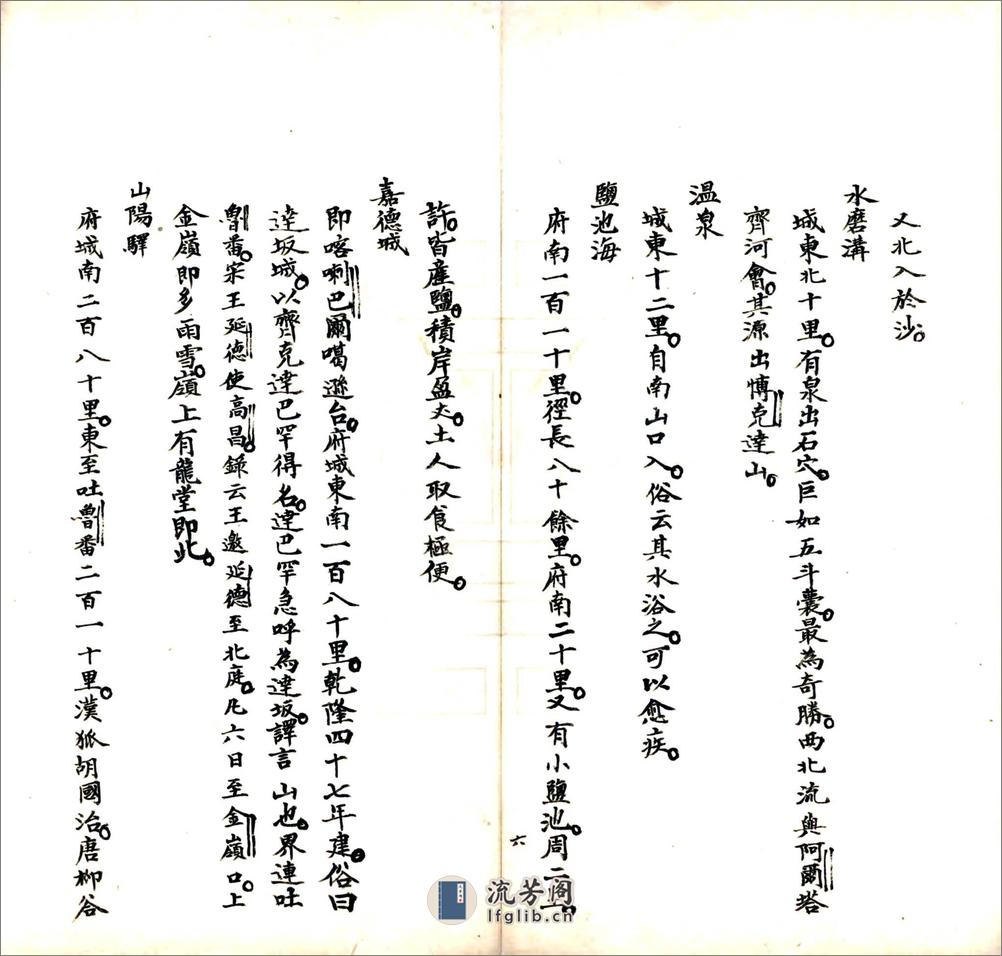 又北入於沙。
水磨溝
城東北十里。有泉出石穴。巨如五斗囊。最為奇勝。西北流與阿爾塔
齊河會。其源出博克達山。
温泉
城東十二里。自南山口入。俗云其水浴之。可以愈疾。
鹽池海
府南一百一十里。徑長八十餘里。府南二十里。又有小鹽池。周二里
許。皆產鹽。積岸盈丈。土人取食極便。
嘉德城
即喀喇巴爾噶遜台。府城東南一百八十里。乾隆四十七年建。俗曰
達坂城。以齊克達巴罕得名。達巴罕急呼為達坂。譯言山也。界連吐
魯番。宋王延德使高昌。錄云王邀延德至北庭。凡六日至金嶺口。上
金嶺即多雨雪。嶺上有龍堂即此。
山陽驛
府城南二百八十里。東至吐魯番二百一十里。漢狐胡國治。唐柳谷
六
流芳阁
lfglib.cn